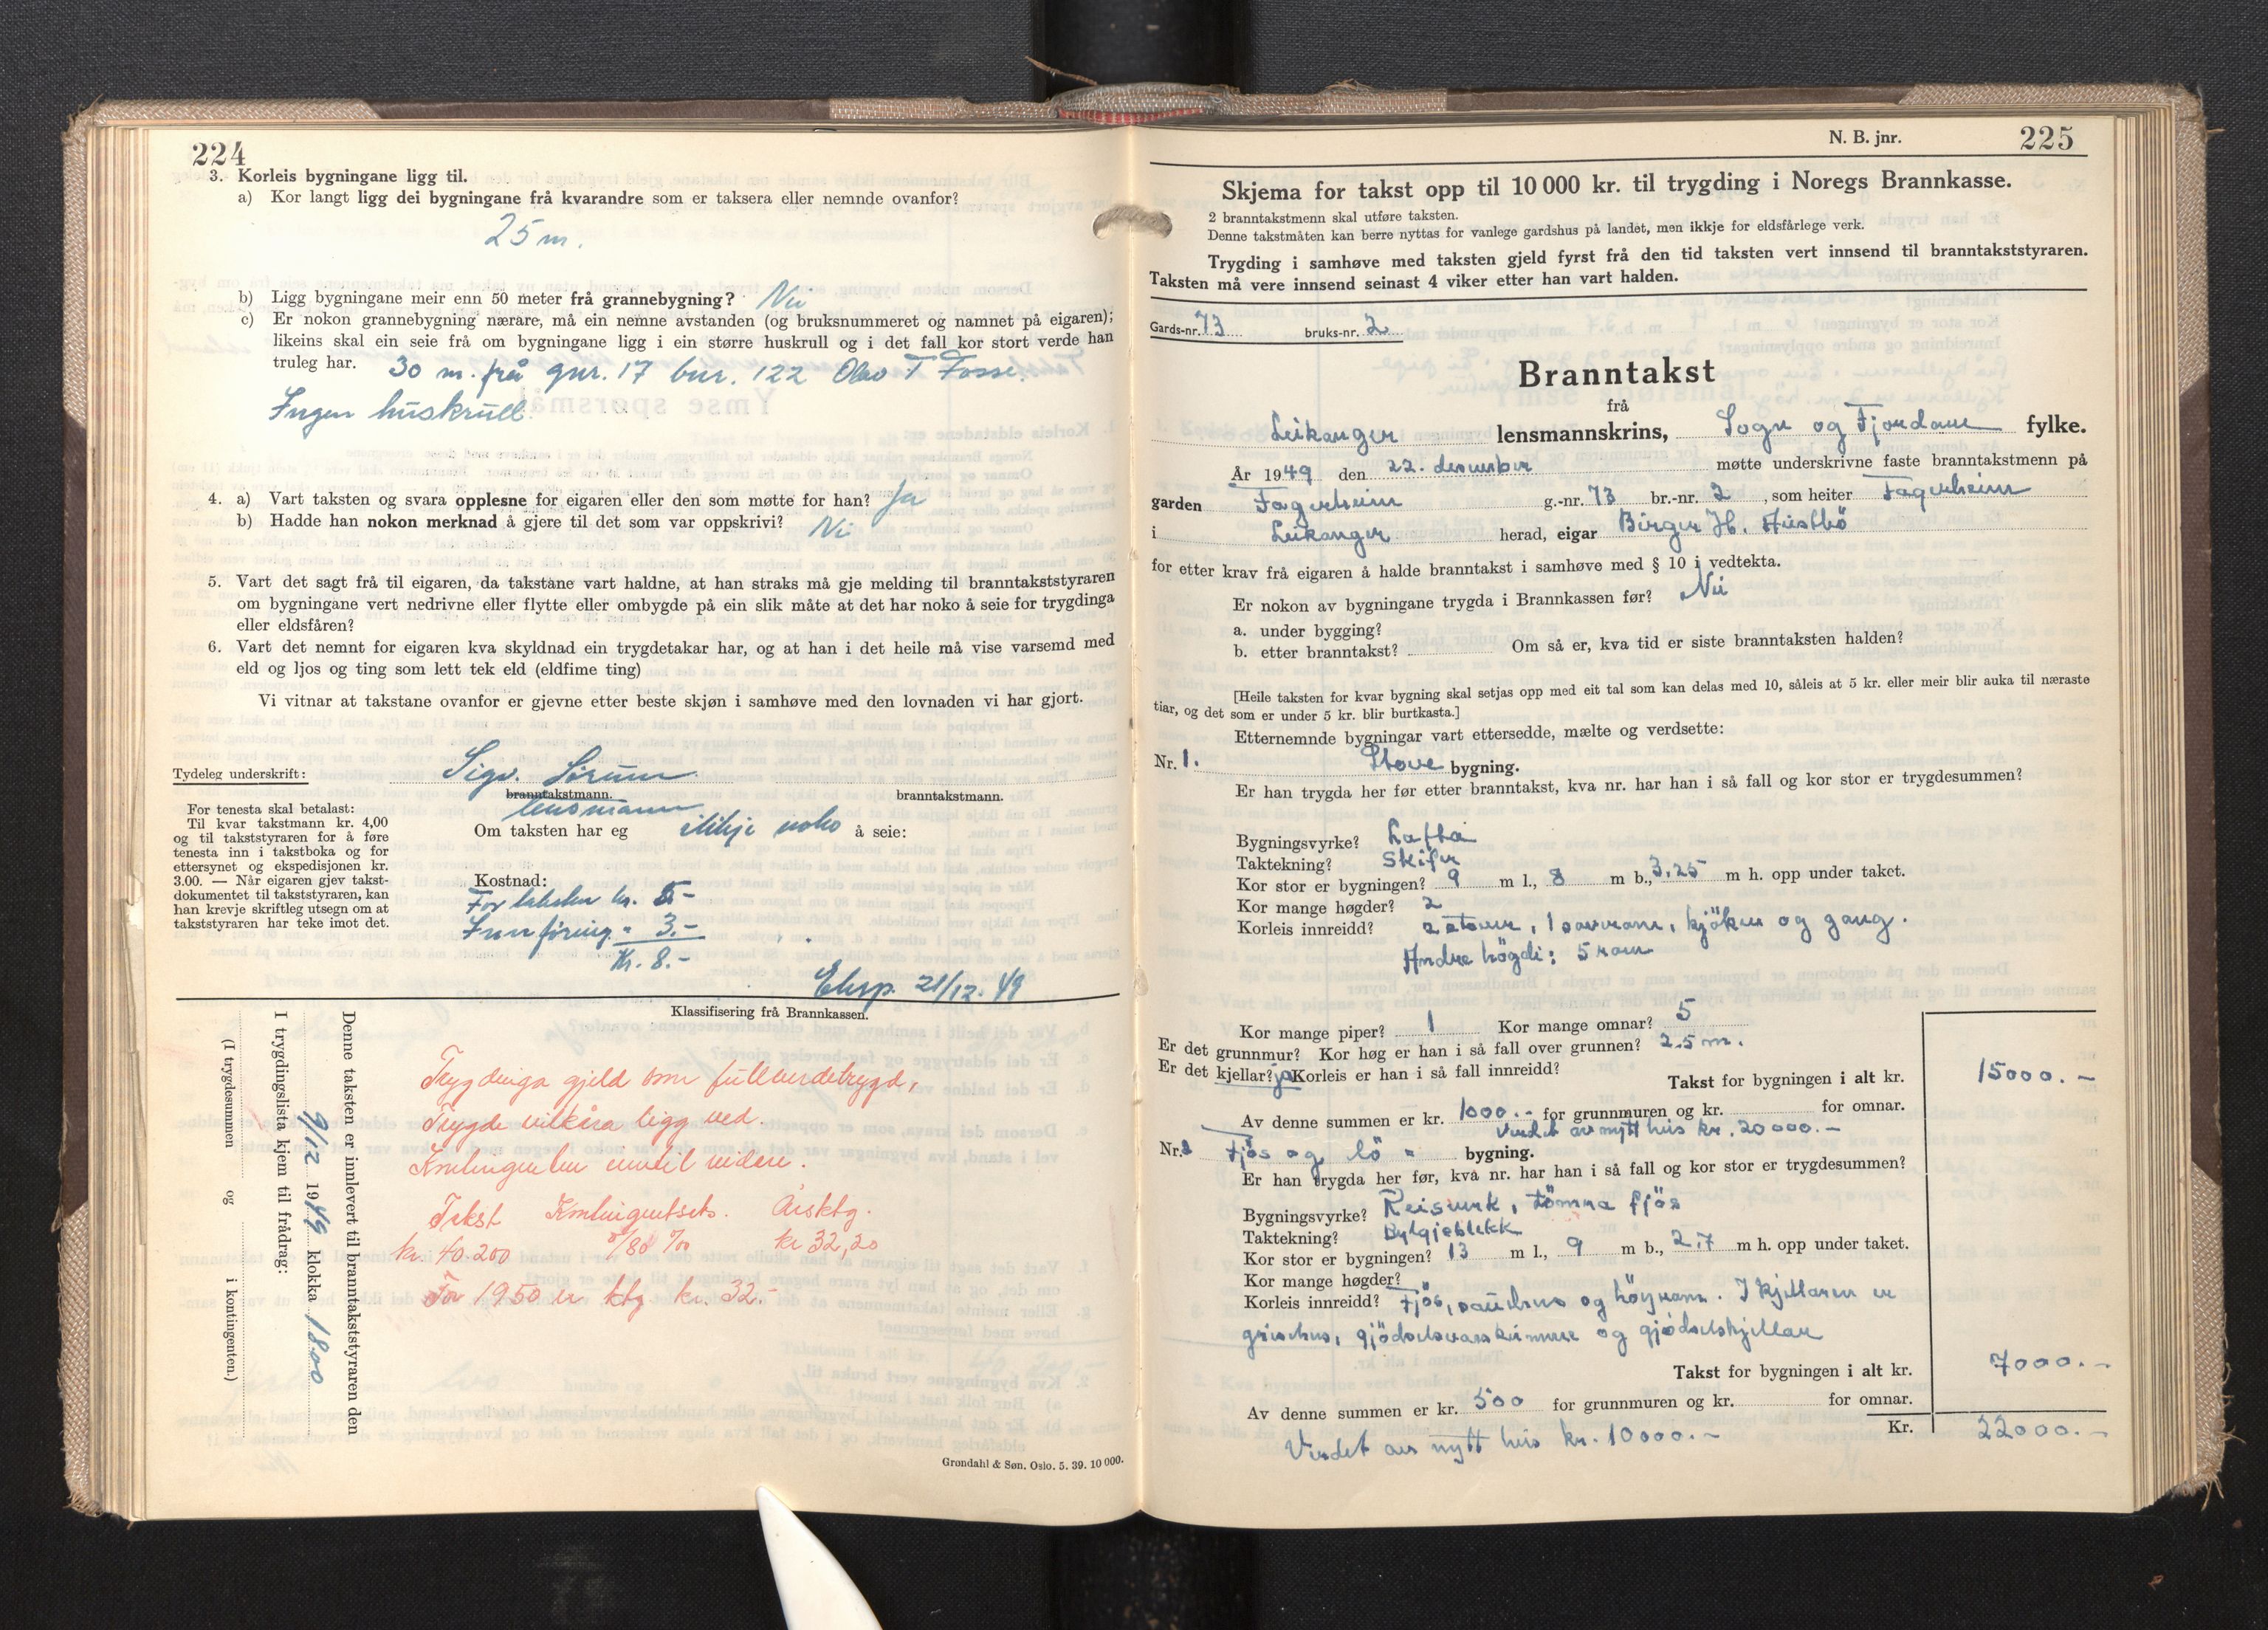 224
3. Korleis bygningane ligg til.
a) Kor langt ligg dei bygningane frå kvarandre som er taksera eller nemnde ovanfor?
25 m.
b) Ligg bygningane meir enn 50 meter frå grannebygning? Nei
c) Er nokon grannebygning nærare, må ein nemne avstanden (og bruksnummeret og namnet på eigaren);
likeins skal ein seie frå om bygningane ligg i ein større huskrull og i det fall kor stort verde han
truleg har. 30 m. frå gnr. 17 bnr. 122 Olav T Fosse.
Ingen huskrull.
4. a) Vart taksten og svara opplesne for eigaren eller den som møtte for han? Ja
b) Hadde han nokon merknad å gjere til det som var oppskrivi? Nei
5. Vart det sagt frå til eigaren, da takstane vart haldne, at han straks må gje melding til branntakststyraren
om bygningane vert nedrivne eller flytte eller ombygde på ein slik måte at det har noko å seie for trygdinga
eller eldsfåren?
6. Vart det nemnt for eigaren kva skyldnad ein trygdetakar har, og at han i det heile må vise varsemd med
eld og ljos og ting som lett tek eld (eldfime ting)
Vi vitnar at takstane ovanfor er gjevne etter beste skjøn i samhøve med den lovnaden vi har gjort.
Tydeleg underskrift: Sigv. Sörum
branntakstmann. branntakstmann.
lensmann
Om taksten har eg ikkje noko å seie:
For tenesta skal betalast:
Til kvar takstmann kr. 4,00
og til takststyraren for å føre
tenesta inn i takstboka og for
ettersynet og ekspedisjonen kr.
3.00. — Når eigaren gjev takst-
dokumentet til takststyraren, kan
han krevje skriftleg utsegn om at
takststyraren har teke imot det.
Kostnad:
For taksten kr. 5-
Innföring " 3.-
Kr. 8.-
Eksp. 21/12. 49
Klassifisering frå Brannkassen.
Trygdinga gjeld som fullverdetrygd,
Trygde vilkåra ligg ved.
Kontingenten inntil vidare.
Takst Kontingentsats. Årsktg.
kr. 40.200 0/80 ‰ kr 32,20
For 1950 er ktg kr. 32.-
Denne taksten er innlevert til branntakststyraren den
9/12 1949 klokka 18.00
I trygdingslista kjem til frådrag:
(I trygdesummen og i kontingenten.)
Grøndahl & Søn. Oslo. 5. 39. 10 000.
N. B. jnr. 225
Skjema for takst opp til 10 000 kr. til trygding i Noregs Brannkasse.
2 branntakstmenn skal utføre taksten.
Denne takstmåten kan berre nyttas for vanlege gardshus på landet, men ikkje for eldsfårlege verk.
Trygding i samhøve med taksten gjeld fyrst frå den tid taksten vert innsend til branntakststyraren.
Taksten må vere innsend seinast 4 viker etter han vart halden.
Gards-nr. 73 bruks-nr. 2
Branntakst
frå
Leikanger lensmannskrins, Sogn og Fjordane fylke.
År 1949 den 22. desember møtte underskrivne faste branntakstmenn på
garden Fagerheim g.-nr. 73 br.-nr. 2, som heiter Fagerheim
i Leikanger herad, eigar Birger H. Husabö
for etter krav frå eigaren å halde branntakst i samhøve med § 10 i vedtekta.
Er nokon av bygningane trygda i Brannkassen før? Nei
a. under bygging?
b. etter branntakst? Om så er, kva tid er siste branntaksten halden?
[Heile taksten for kvar bygning skal setjas opp med eit tal som kan delas med 10, såleis at 5 kr. eller meir blir auka til næraste
tiar, og det som er under 5 kr. blir burtkasta.]
Etternemnde bygningar vart ettersedde, mælte og verdsette:
Nr. 1. Stove bygning.
Er han trygda her før etter branntakst, kva nr. har han i så fall og kor stor er trygdesummen?
Bygningsvyrke? Lafta
Taktekning? Skifer
Kor stor er bygningen? 9 m l., 8 m b., 3,25 m h. opp under taket.
Kor mange høgder? 2
Korleis innreidd? 2 stover, 1 soverom, kjöken og gang.
Andre högdi: 5 rom
Kor mange piper? 1 Kor mange omnar? 5
Er det grunnmur? Kor høg er han i så fall over grunnen? 2.5 m.
Er det kjellar? ja Korleis er han i så fall innreidd?
Takst for bygningen i alt kr. 15000.-
Av denne summen er kr. 1000.- for grunnmuren og kr. for omnar.
Verdet av nytt hus kr. 20000.-
Nr. 2 Fjös og lö - bygning.
Er han trygda her før, kva nr. har han i så fall og kor stor er trygdesummen?
Bygningsvyrke? Reisverk, tömra fjös
Taktekning? Bylgjeblekk
Kor stor er bygningen? 13 m l., 9 m b., 2,7 m h. opp under taket.
Kor mange høgder?
Korleis innreidd? Fjös, sauehus og höyrom. I kjellaren er
grisehus, gjödselvasskummer og gjödselskjellar
Takst for bygningen i alt kr. 7000.-
Av denne summen er kr. 500 for grunnmuren og kr. for omnar.
Kr. 22000.-
Verdet av nytt hus kr. 10000.-